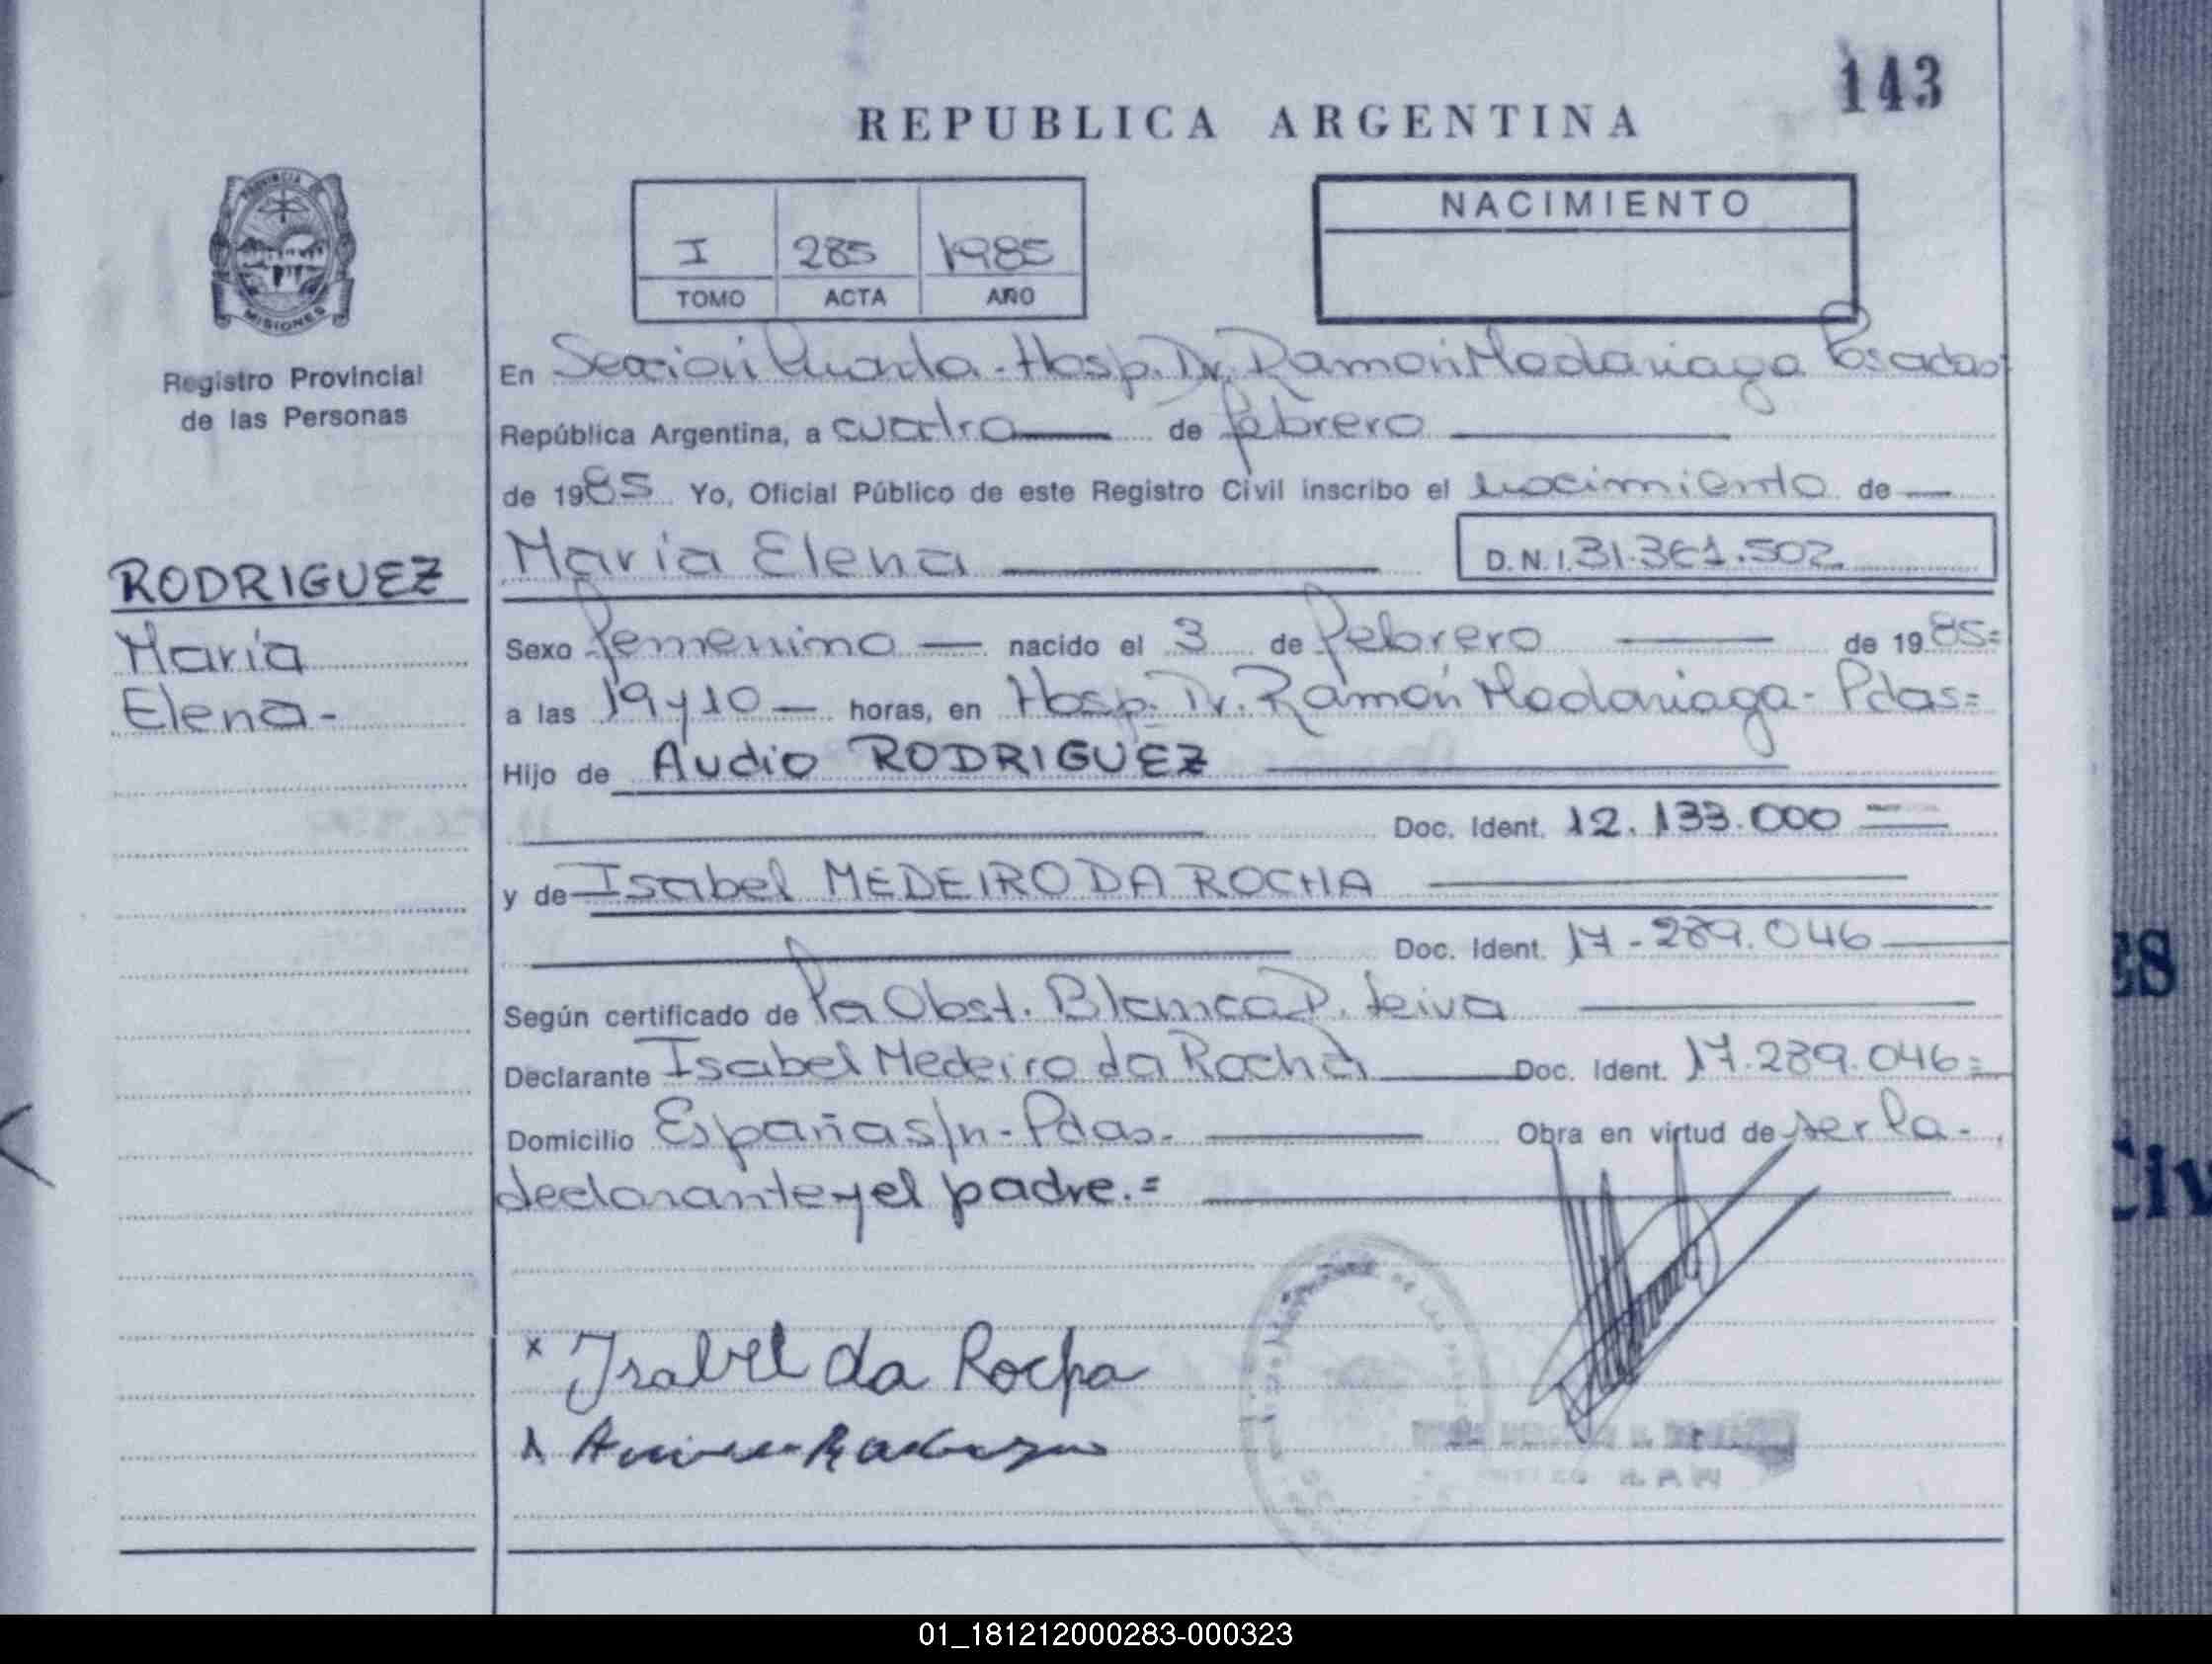 143
REPUBLICA ARGENTINA
PROVINCIA DE
MISIONES
Registro Provincial
de las Personas
I 285 1985
TOMO ACTA AÑO
NACIMIENTO
En Sección Cuarta - Hosp. Dr. Ramón Madariaga Posadas
República Argentina, a cuatro de febrero
de 1985 Yo, Oficial Público de este Registro Civil inscribo el nacimiento de
RODRIGUEZ
María
Elena-
María Elena D.N.I. 31.361.502
Sexo femenino nacido el 3 de febrero de 1985=
a las 19 y 10 horas, en Hosp. Dr. Ramón Madariaga - Pdas=
Hijo de Audio RODRIGUEZ
Doc. Ident. 12.133.000
y de Isabel MEDEIRO DA ROCHA
Doc. Ident. 17-289.046
Según certificado de la Obst. Blanca P. Leiva
Declarante Isabel Medeiro da Rocha Doc. Ident. 17.289.046=
Domicilio España s/n - Pdas. Obra en virtud de ser la-
declarante y el padre.=
x Isabel da Rocha
ES
Civ
01_181212000283-000323